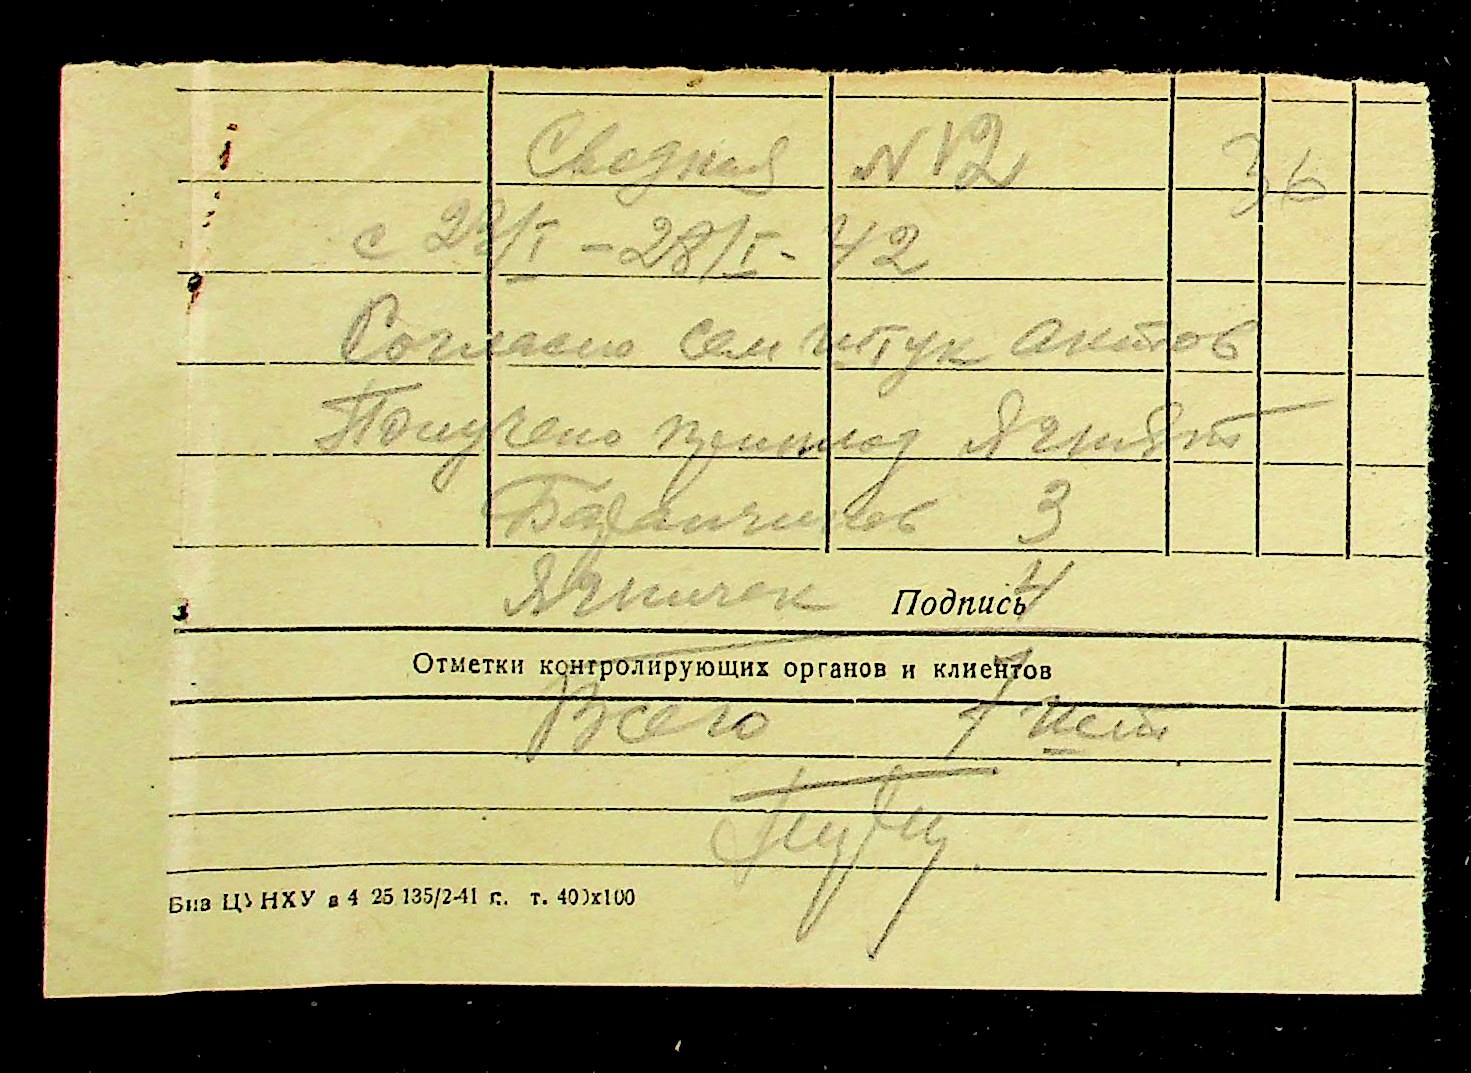 Сводная N 12 36
с 22/I - 28/I - 42
Согласно сем штук актов
Получено приплод Ягнят
Баранчиков 3
Ягничек 4
Подпись
Отметки контролирующих органов и клиентов
Всего 7 шт
Биз ЦУНХУ в 4 25 135/2-41 г. т. 400х100